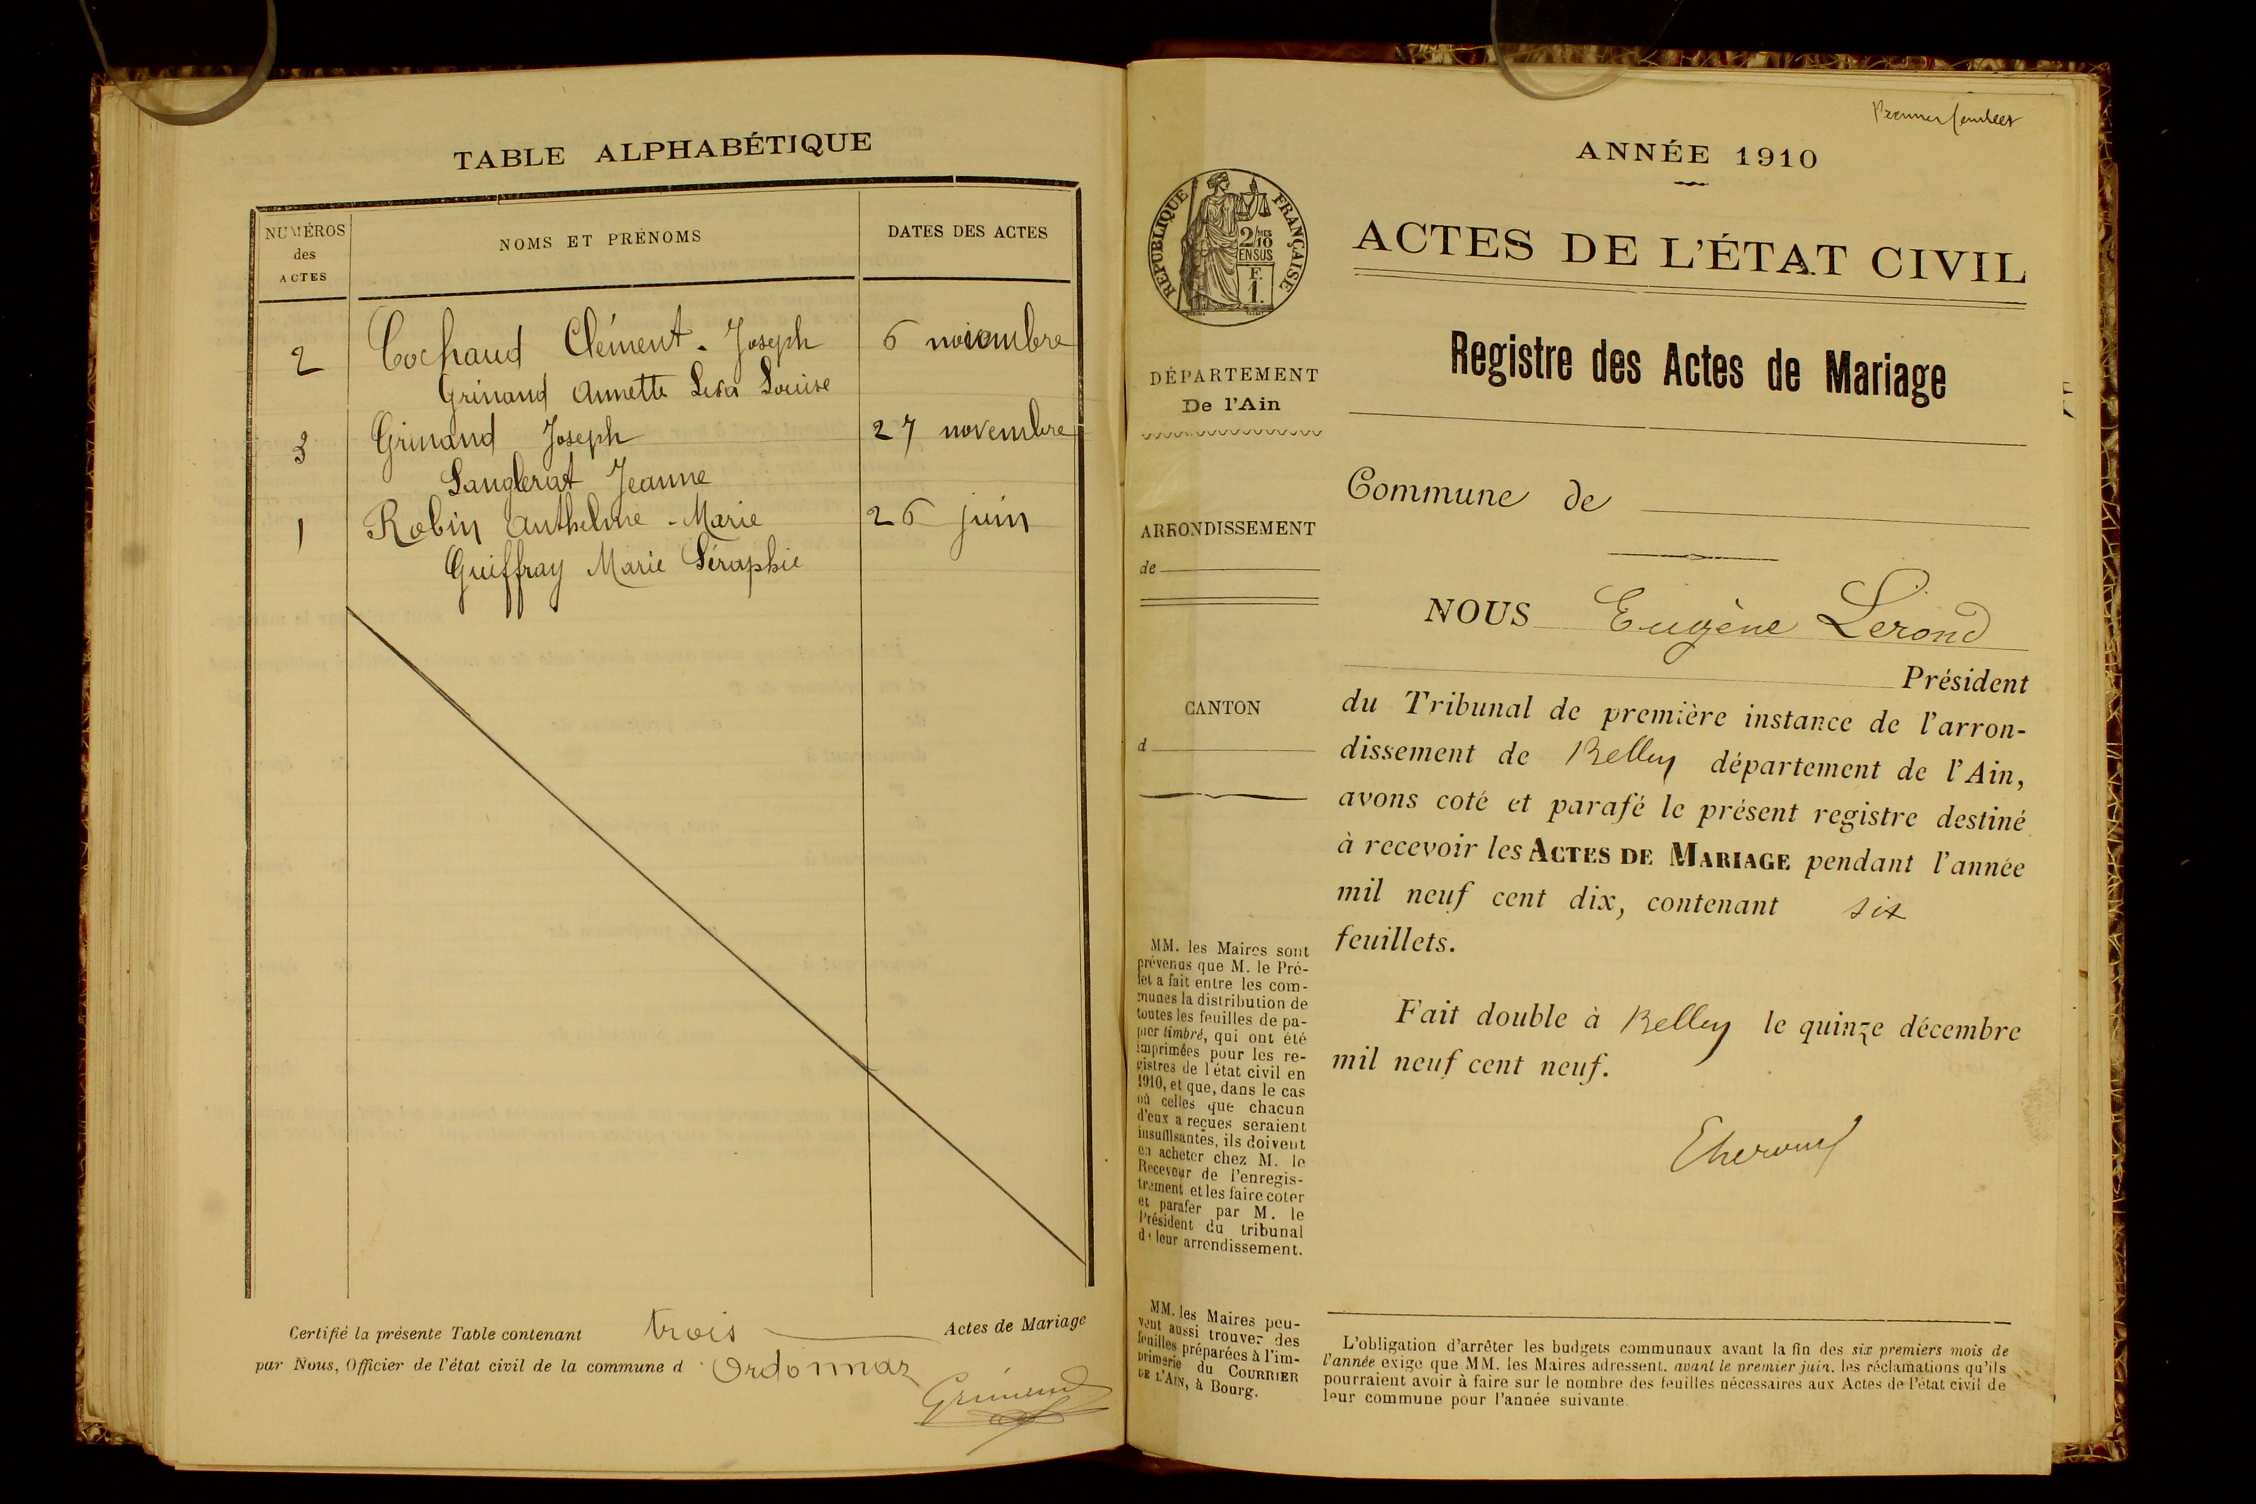 TABLE ALPHABÉTIQUE
NUMÉROS
des
ACTES
NOMS ET PRÉNOMS
DATES DES ACTES
2 Cochaud Clément - Joseph 6 novembre
Grinand Annette Lisa Louise
3 Grinand Joseph 27 novembre
Sanglerat Jeanne
1 Robin Anthelme - Marie 26 juin
Guiffray Marie Séraphie
Certifié la présente Table contenant trois Actes de Mariage
par Nous, Officier de l'état civil de la commune d Ordonnaz
Grinand
Premier feuillet
ANNÉE 1910
RÉPUBLIQUE FRANÇAISE
2/10MES
EN SUS
F.
1.
ACTES DE L'ÉTAT CIVIL
Registre des Actes de Mariage
DÉPARTEMENT
De l'Ain
ARRONDISSEMENT
de
CANTON
d
MM. les Maires sont
prévenus que M. le Pré-
fet a fait entre les com-
munes la distribution de
toutes les feuilles de pa-
pier timbré, qui ont été
imprimées pour les re-
gistres de l'état civil en
1910, et que, dans le cas
où celles que chacun
d'eux a reçues seraient
insuffisantes, ils doivent
en acheter chez M. le
Receveur de l'enregis-
trement et les faire coter
et parafer par M. le
Président du tribunal
de leur arrondissement.
MM. les Maires peu-
vent aussi trouver des
feuilles préparées à l'im-
primerie du COURRIER
DE L'AIN, à Bourg.
Commune de
NOUS Eugène Lerond
Président
du Tribunal de première instance de l'arron-
dissement de Belley département de l'Ain,
avons coté et parafé le présent registre destiné
à recevoir les ACTES DE MARIAGE pendant l'année
mil neuf cent dix, contenant six
feuillets.
Fait double à Belley le quinze décembre
mil neuf cent neuf.
L'obligation d'arrêter les budgets communaux avant la fin des six premiers mois de
l'année exige que MM. les Maires adressent, avant le premier juin, les réclamations qu'ils
pourraient avoir à faire sur le nombre des feuilles nécessaires aux Actes de l'état civil de
leur commune pour l'année suivante.